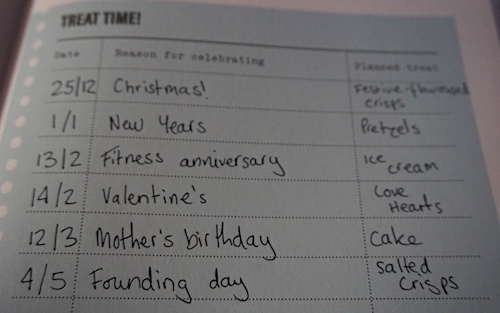 TREAT TIME!
Date Reason for celebrating Planned treat
25/12 Christmas! Festive-flavoured
crisps
1/1 New Years Pretzels
13/2 Fitness anniversary ice
cream
14/2 Valentine's Love
Hearts
12/3 Mother's birthday Cake
4/5 Founding day salted
Crisps